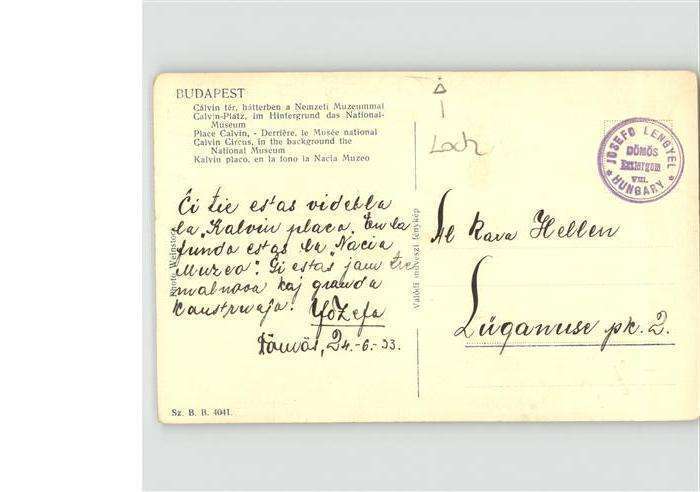 BUDAPEST
Cálvin tér, hátterben a Nemzeti Muzeummal
Calvin-Platz, im Hintergrund das National-
Museum
Place Calvin, - Derrière, le Musée national
Calvin Circus, in the background the
National Museum
Kalvin placo, en la fono la Nacia Muzeo
Loch
JOSEFO LENGYEL
DÖMÖS
Esztergom
VIII.
HUNGARY
Ĉi tie estas videbla
la "Kalvin placo. En la
fundo estas la "Nacia
Muzeo". Ĝi estas jam tre
malnova kaj granda
Yozefo
Dömös, 24.-6.-33.
Valódi művészi fénykép
Al Kara Hellen
Lüganuse pk. 2.
Sz. B. B. 4041.